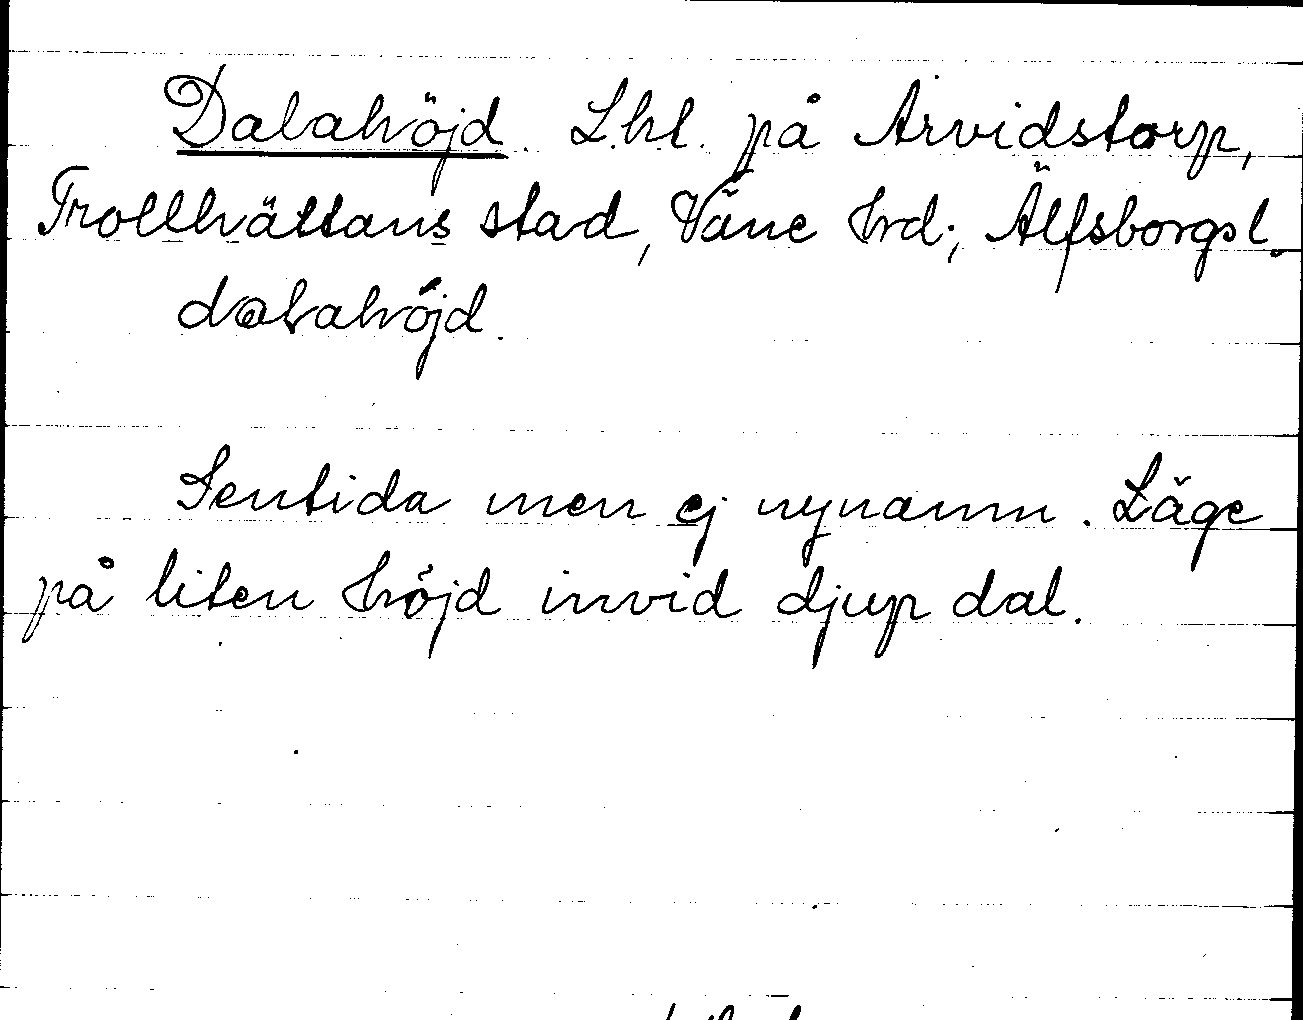 Dalahöjd. L.hl. på Arvidstorp,
Trollhättans stad, Väne hrd., Älfsborgs l.
dalahöjd.
Sentida men ej nynamn. Läge
på liten höjd invid djup dal.